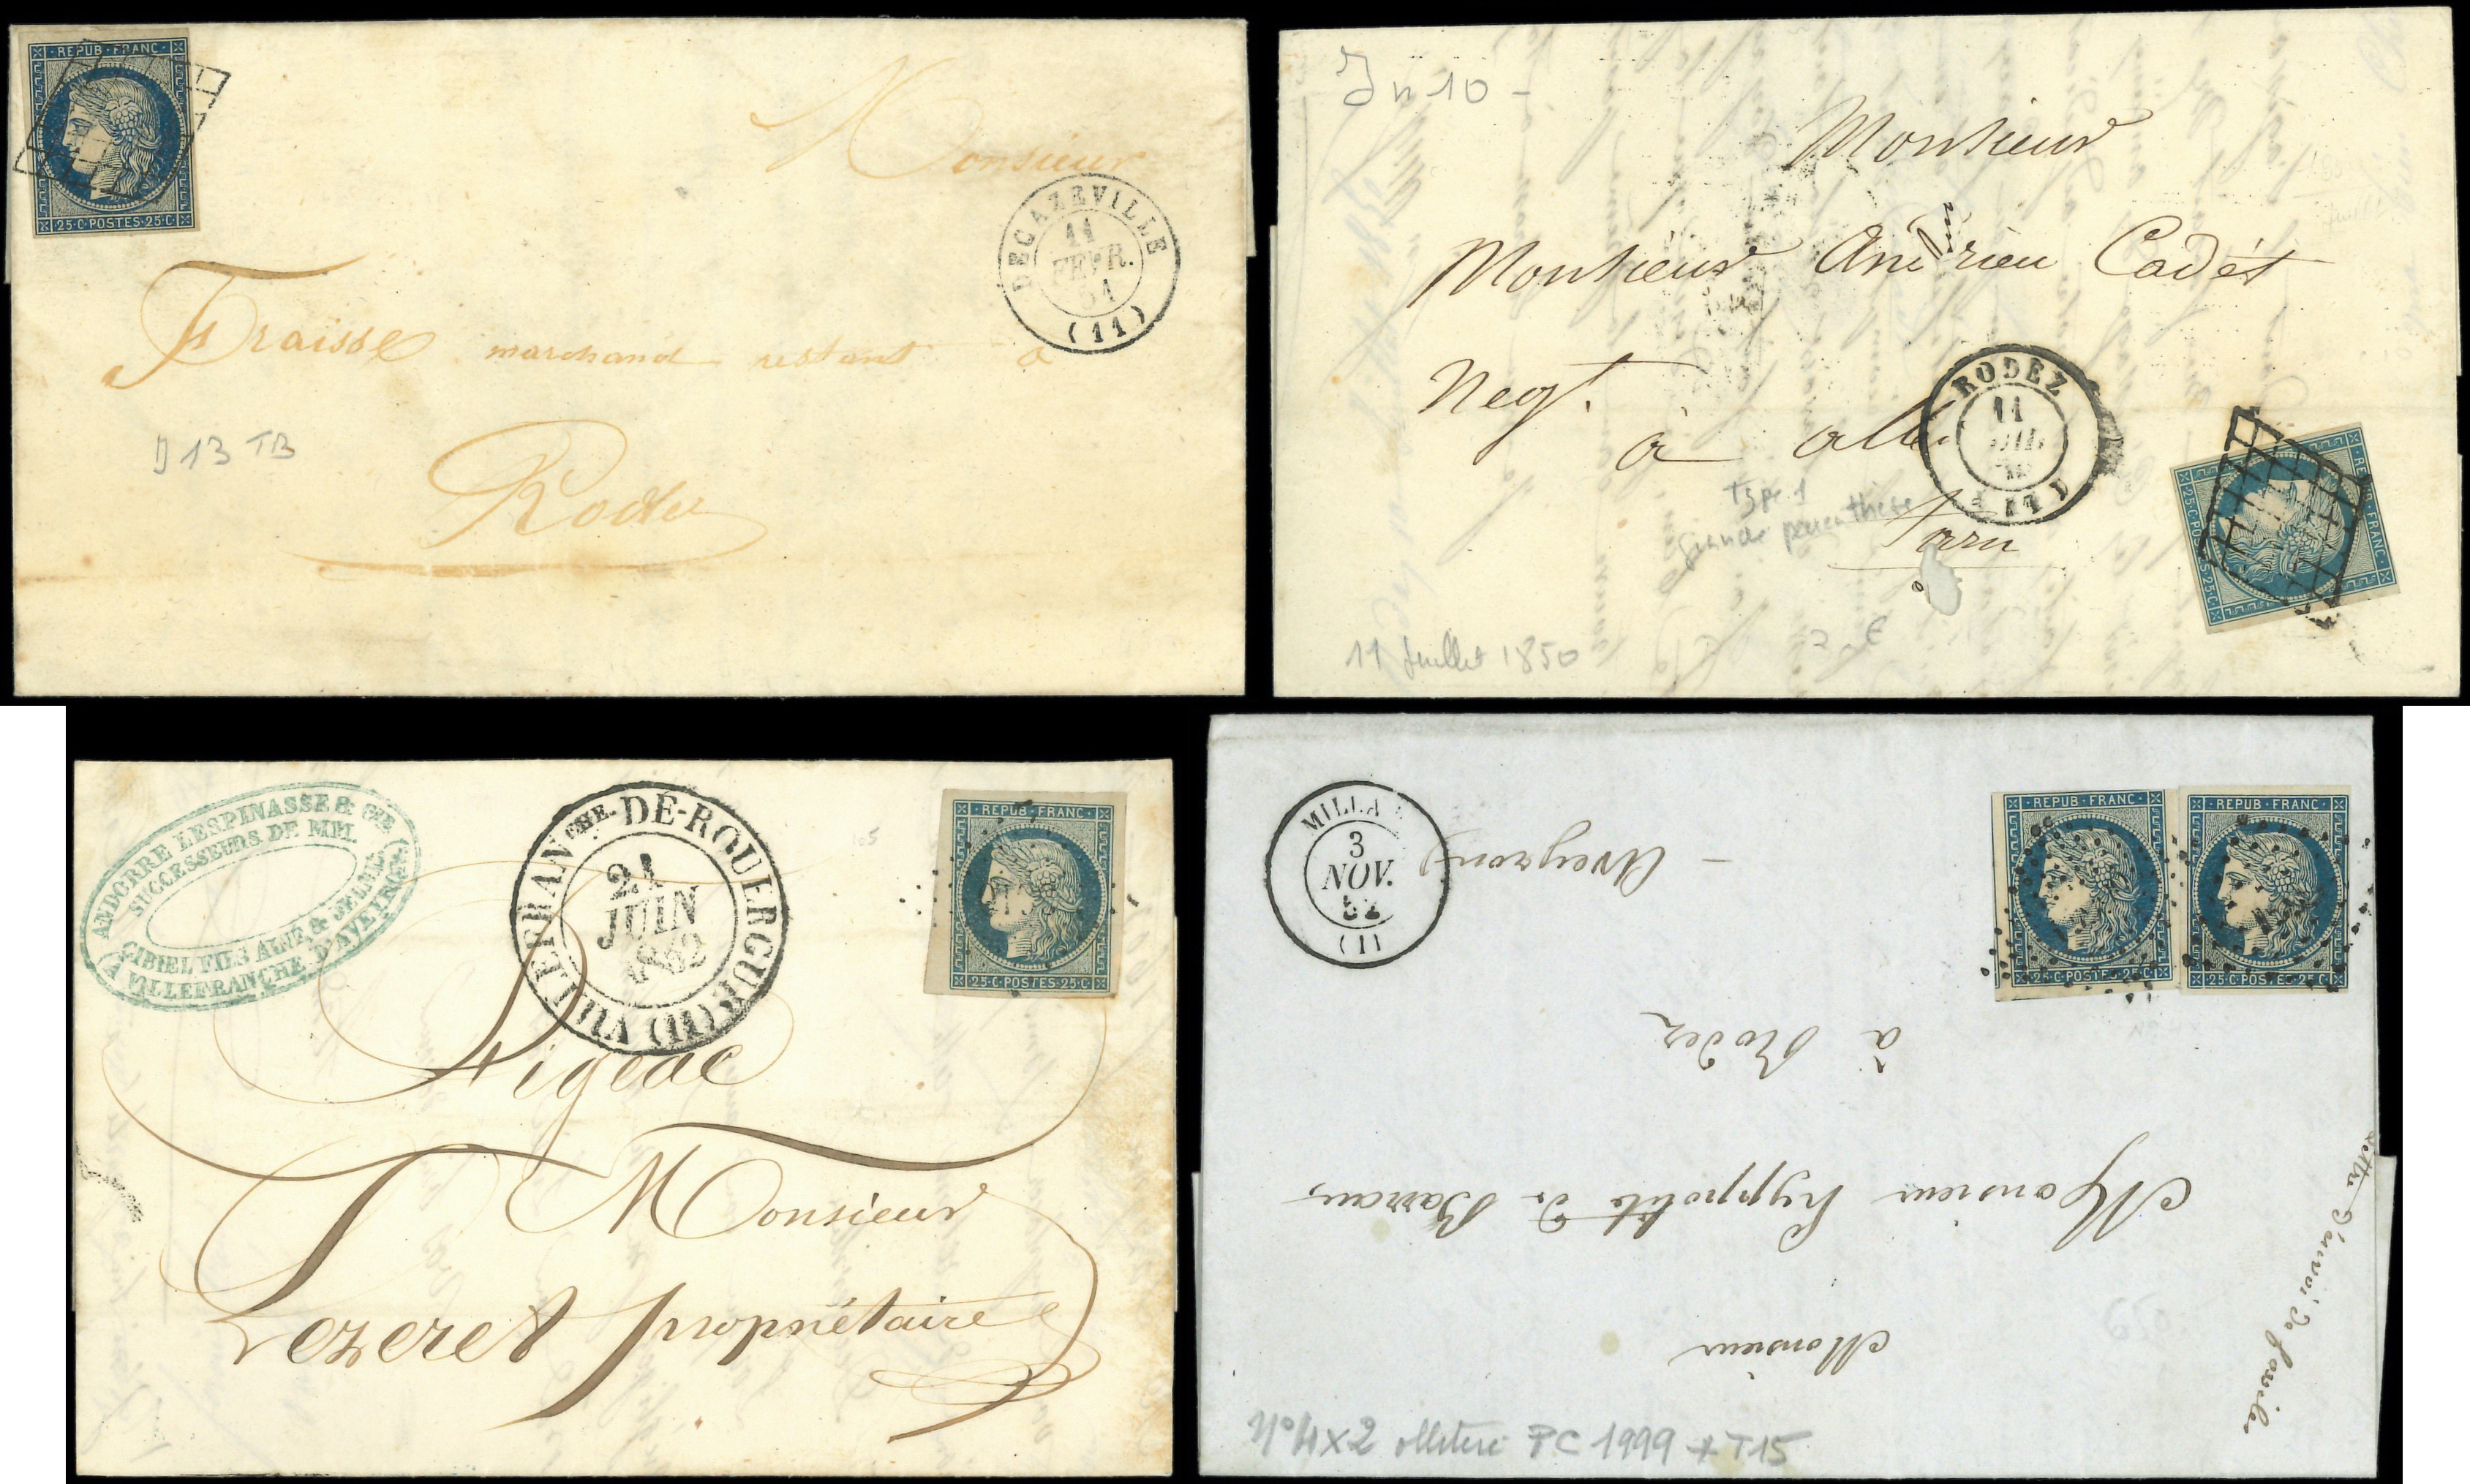 REPUB·FRANC·
25·C·POSTES·25·C·
Monsieur
DECAZEVILLE
11
FEVR.
51
(11)
Fraisse marchand restant à
Rodez
D13 TB
In 10 -
Monsieur
Monsieur Andrieu Cadét
Negt.
à albi
RODEZ
11
JUIL
11
Type 1
grande parenthèse
Tarn
11 Juillet 1850
REPUB·FRANC·
25·C·POSTES·25·C·
ANDORRE LESPINASSE & CIE
SUCCESSEURS DE MM.
CIBIEL FILS AINÉ & JEUNE
(A VILLEFRANCHE D'AVEYRON)
VILLEFRANCHE-DE-ROUERGUE (11)
21
JUIN
1852
105
REPUB·FRANC·
25·C·POSTES·25·C·
Figeac
Monsieur
Lezeret propriétaire
MILLA
3
NOV.
52
(11)
REPUB·FRANC·
25·C·POSTES·25·C·
REPUB·FRANC·
25·C·POSTES·25·C·
Monsieur
Monsieur hyppolite de Barrau
à Rodez
- Aveyron
Lettre d'envoi de
N°4x2 PC 1999 + T15